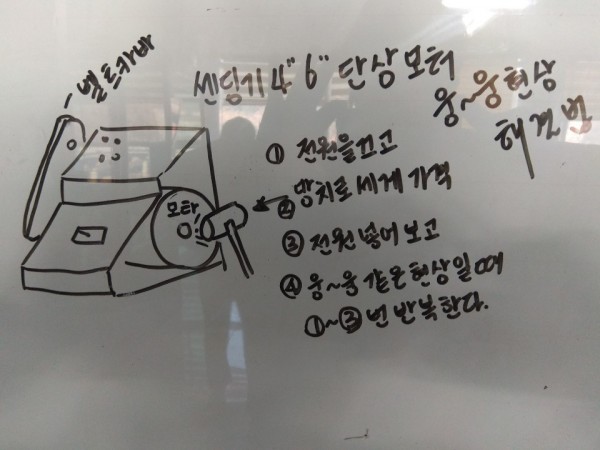 벨트카바
센딩기 4" 6" 단상 모터
웅~웅 현상
해결법
① 전원을 끄고
② 망치로 세게 가격
③ 전원 넣어 보고
④ 웅~웅 같은 현상일 때
①~③ 번 반복한다.
모타